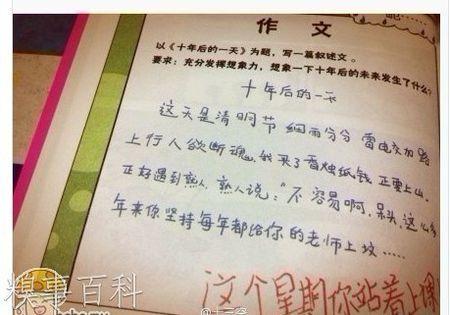 作 文
以《十年后的一天》为题,写一篇叙述文。
要求:充分发挥想象力,想象一下十年后的未来发生了什么?
十年后的一天
这天是清明节 细雨分分 雷电交加 路
上行人欲断魂,我买了香烛纸钱 正要上山,
正好遇到熟人,熟人说:“不容易啊,呆头,这么多
年来你坚持每年都给你的老师上坟……
这个星期你站着上课
糗事百科